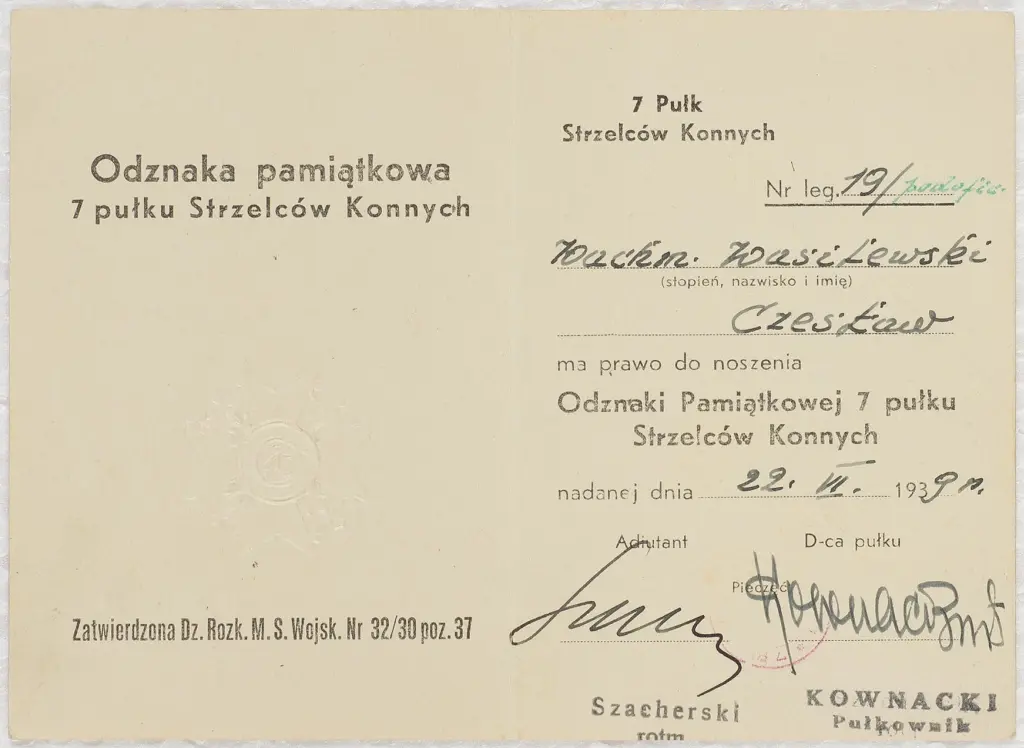 Odznaka pamiątkowa
7 pułku Strzelców Konnych
Zatwierdzona Dz. Rozk. M. S. Wojsk. Nr 32/30 poz. 37
7 Pułk
Strzelców Konnych
Nr leg. 19/podofic.
Wachm. Wasilewski
(stopień, nazwisko i imię)
Czesław
ma prawo do noszenia
Odznaki Pamiątkowej 7 pułku
Strzelców Konnych
nadanej dnia 22. VI. 1939 r.
Adjutant D-ca pułku
Pieczęć
Kownacki
Szacherski
rotm
KOWNACKI
Pułkownik